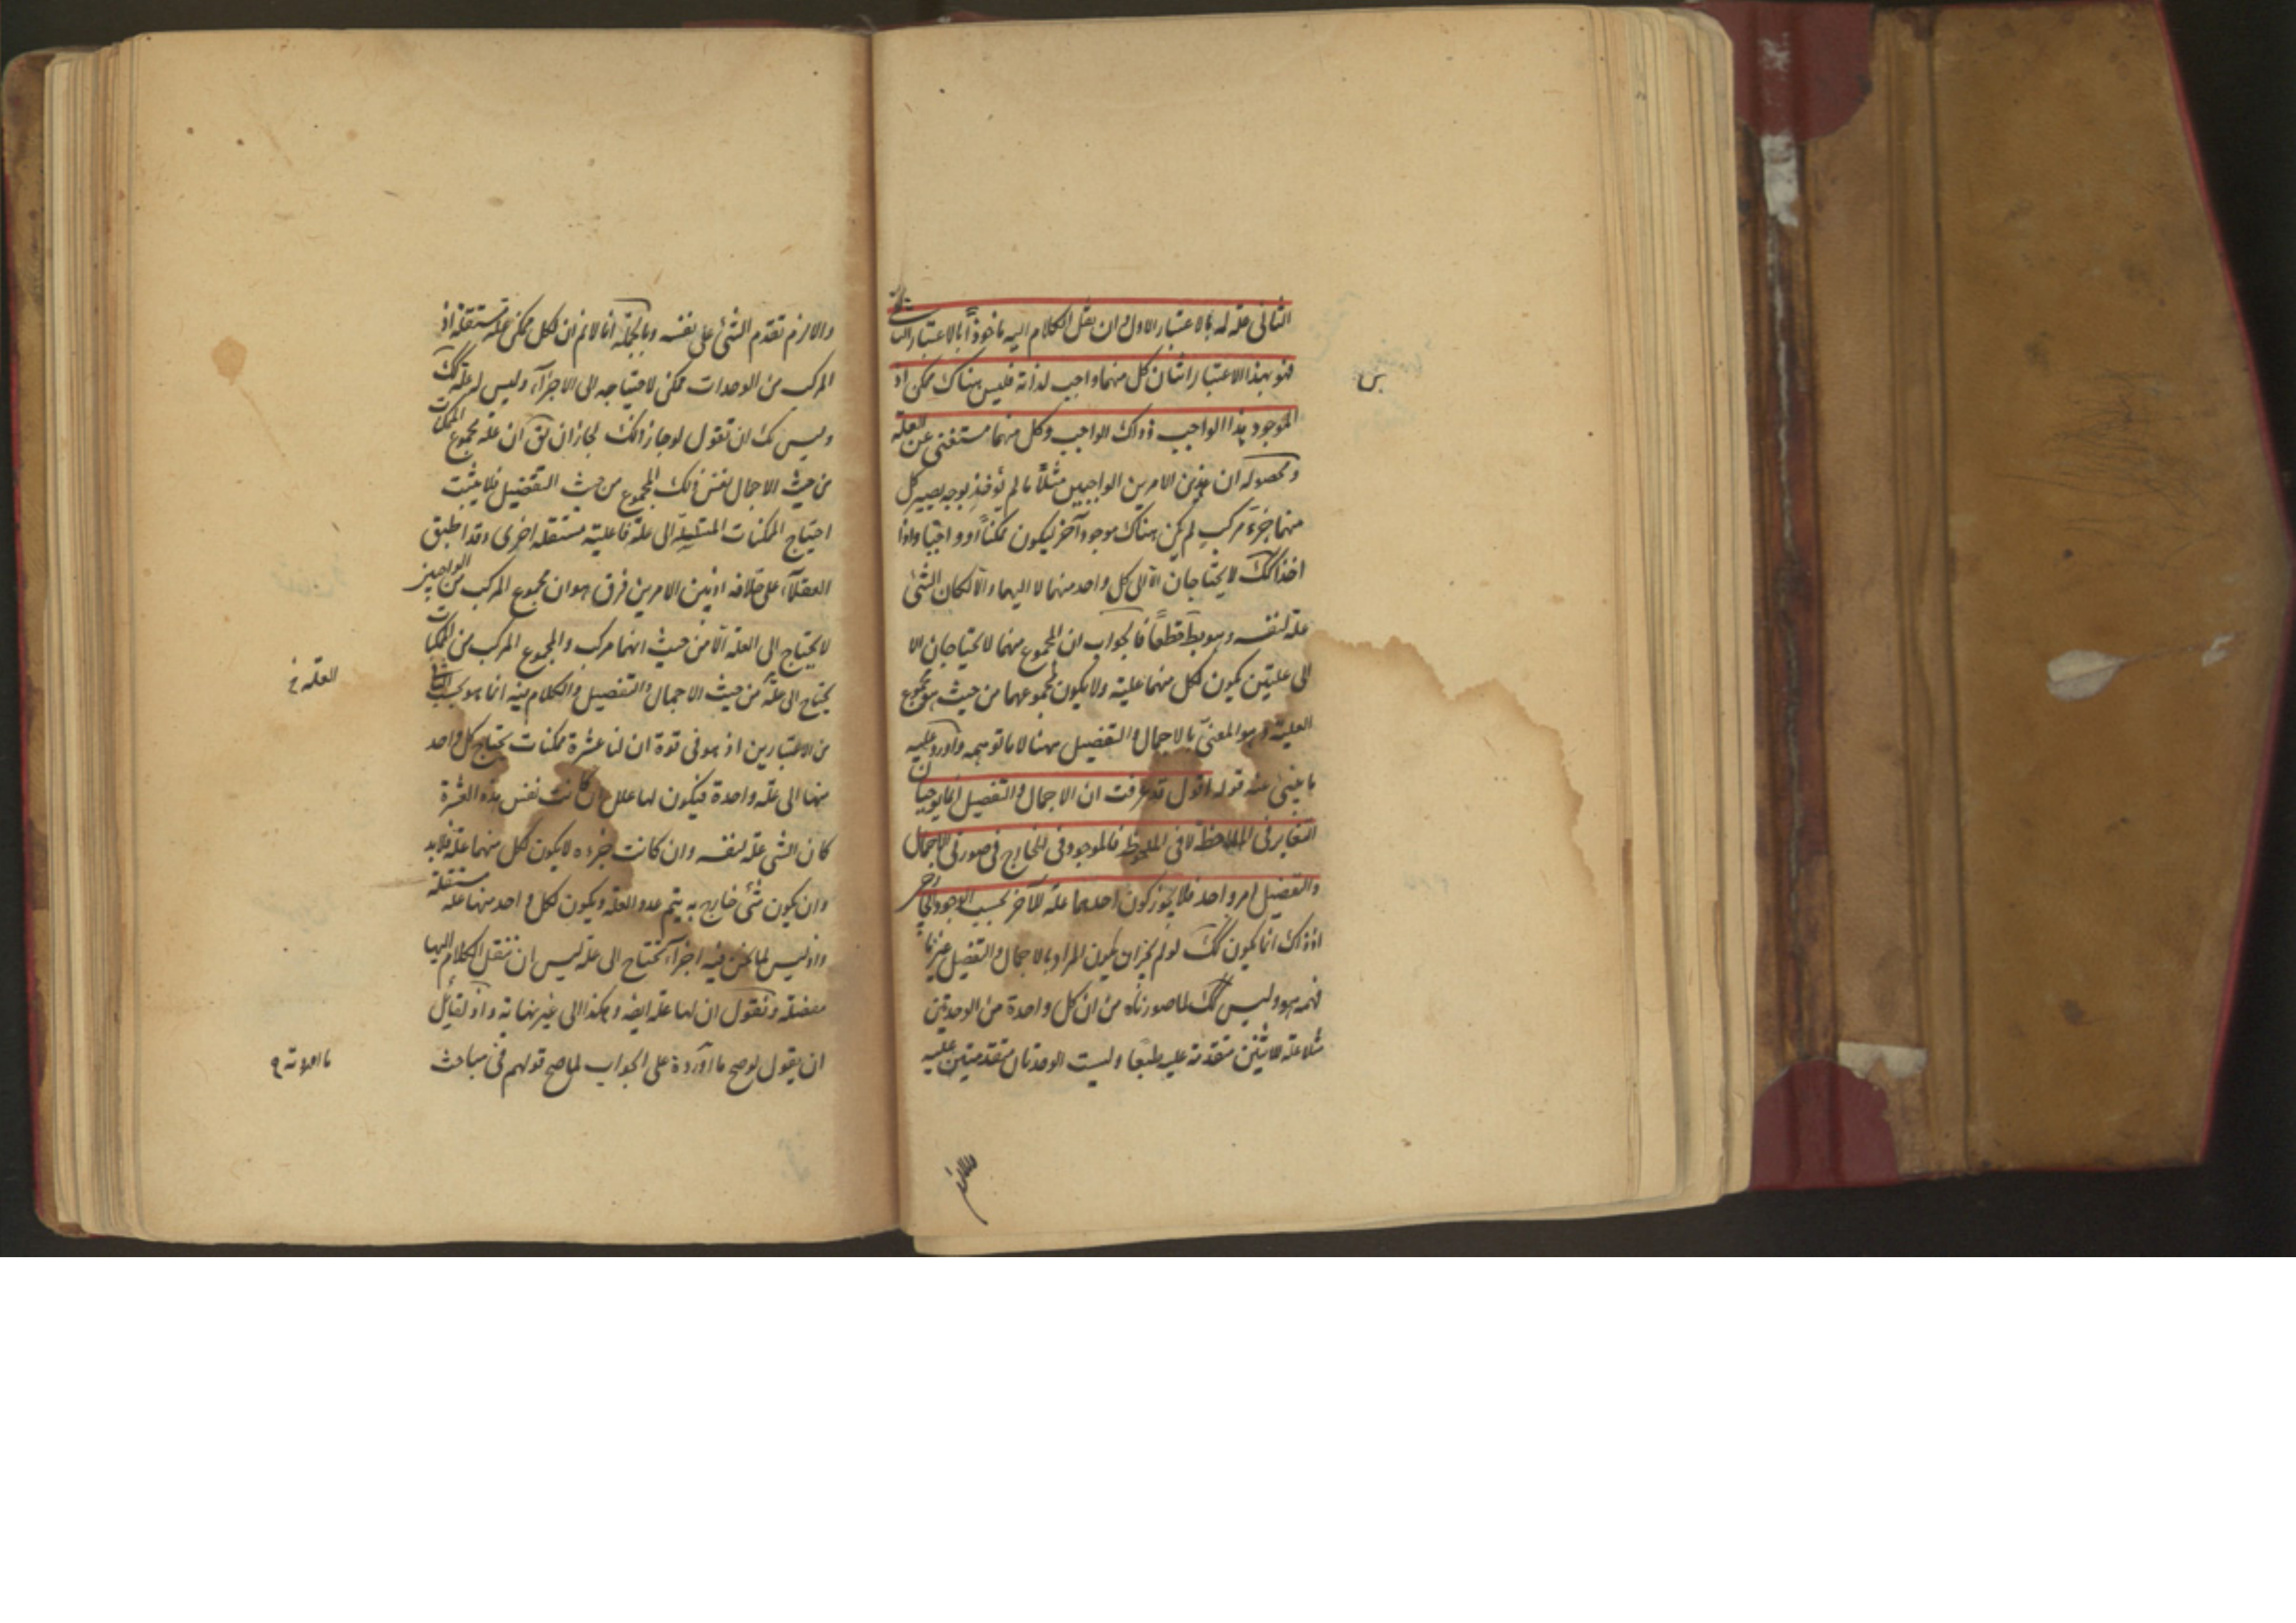 الثانی علة له بالاعتبار الاول وان نقل الکلام الیه ماخوذاً بالاعتبار الثانی
فهو بهذا الاعتبار اثنان کل منهما واجب لذاته فلیس هناک ممکن اذ
الموجود هذا الواجب وذاک الواجب وکل منهما مستغنی عن العلة
ومحصوله ان هذین الامرین الواجبین مثلاً ما لم یؤخذ بوجه یصیر کل
منهما جزء مرکب لم یکن هناک موجود آخر لیکون ممکناً او واجباً واذا
اخذ کک لا یحتاجان الا الی کل واحد منهما لا الیهما والا لکان الشئ
علة لنفسه وهو بط قطعاً فالجواب ان المجموع منهما لا یحتاجان الا
الی علیتین یکون لکل منهما علیة ولا یکون لمجموعهما من حیث هو مجموع
العلیة وهو المعنی بالاجمال والتفصیل ههنا لا ما توهمه واورد علیه
ما ینبئ عنه قوله اقول قد عرفت ان الاجمال والتفصیل انما یوجبان
التغایر فی الملاحظة لا فی الملحوظ فالموجود فی الخارج فی صورتی الاجمال
والتفصیل امر واحد فلا یجوز کون احدهما علة للآخر بحسب الوجود الخارجی
اذ ذاک انما یکون کک لو لم یجز ان یکون المراد بالاجمال والتفصیل غیر ما
فهمه هو ولیس کک لما صورناه من ان کل واحدة من الوحدتین
مثلا علة للاثنین متقدمة علیه طبعا ولیست الوحدتان متقدمتین علیه
والا لزم تقدم الشئ علی نفسه وبالجملة انا لا نم ان لکل ممکن علة مستقلة اذ
المرکب من الوحدات ممکن لاحتیاجه الی الاجزاء ولیس له علة کک
ولیس لک ان تقول لو جاز ذلک لجاز ان یق ان علة مجموع الممکنات
من حیث الاجمال نفس ذلک المجموع من حیث التفصیل فلا یثبت
احتیاج الممکنات المتسلسلة الی علة فاعلیة مستقلة اخری وقد اطبق
العقلاء علی خلافه اذ بین الامرین فرق هو ان مجموع المرکب من الواجبین
لا یحتاج الی العلة الا من حیث انهما مرکب والمجموع المرکب من الممکنات
یحتاج الی علة من حیث الاجمال والتفصیل والکلام فیه انما هو بحسب الثانی
من الاعتبارین اذ هو فی قوة ان لنا عشرة ممکنات یحتاج کل واحد
منها الی علة واحدة فیکون لها علل ان کانت نفس هذه العشرة
کان الشئ علة لنفسه وان کانت جزءه لا یکون لکل منهما علة فلابد
وان یکون شئ خارج به یتم عدد العلة ویکون لکل واحد منها علة مستقلة
واذ لیس لما نحن فیه اجزاء تحتاج الی علة لیس ان ننقل الکلام الیها
مفصلة ونقول ان لها علة ایضه وهکذا الی غیر نهایة واذ لقائل
ان یقول لو صح ما اورده علی الجواب لما صح قولهم فی مباحث
العلة